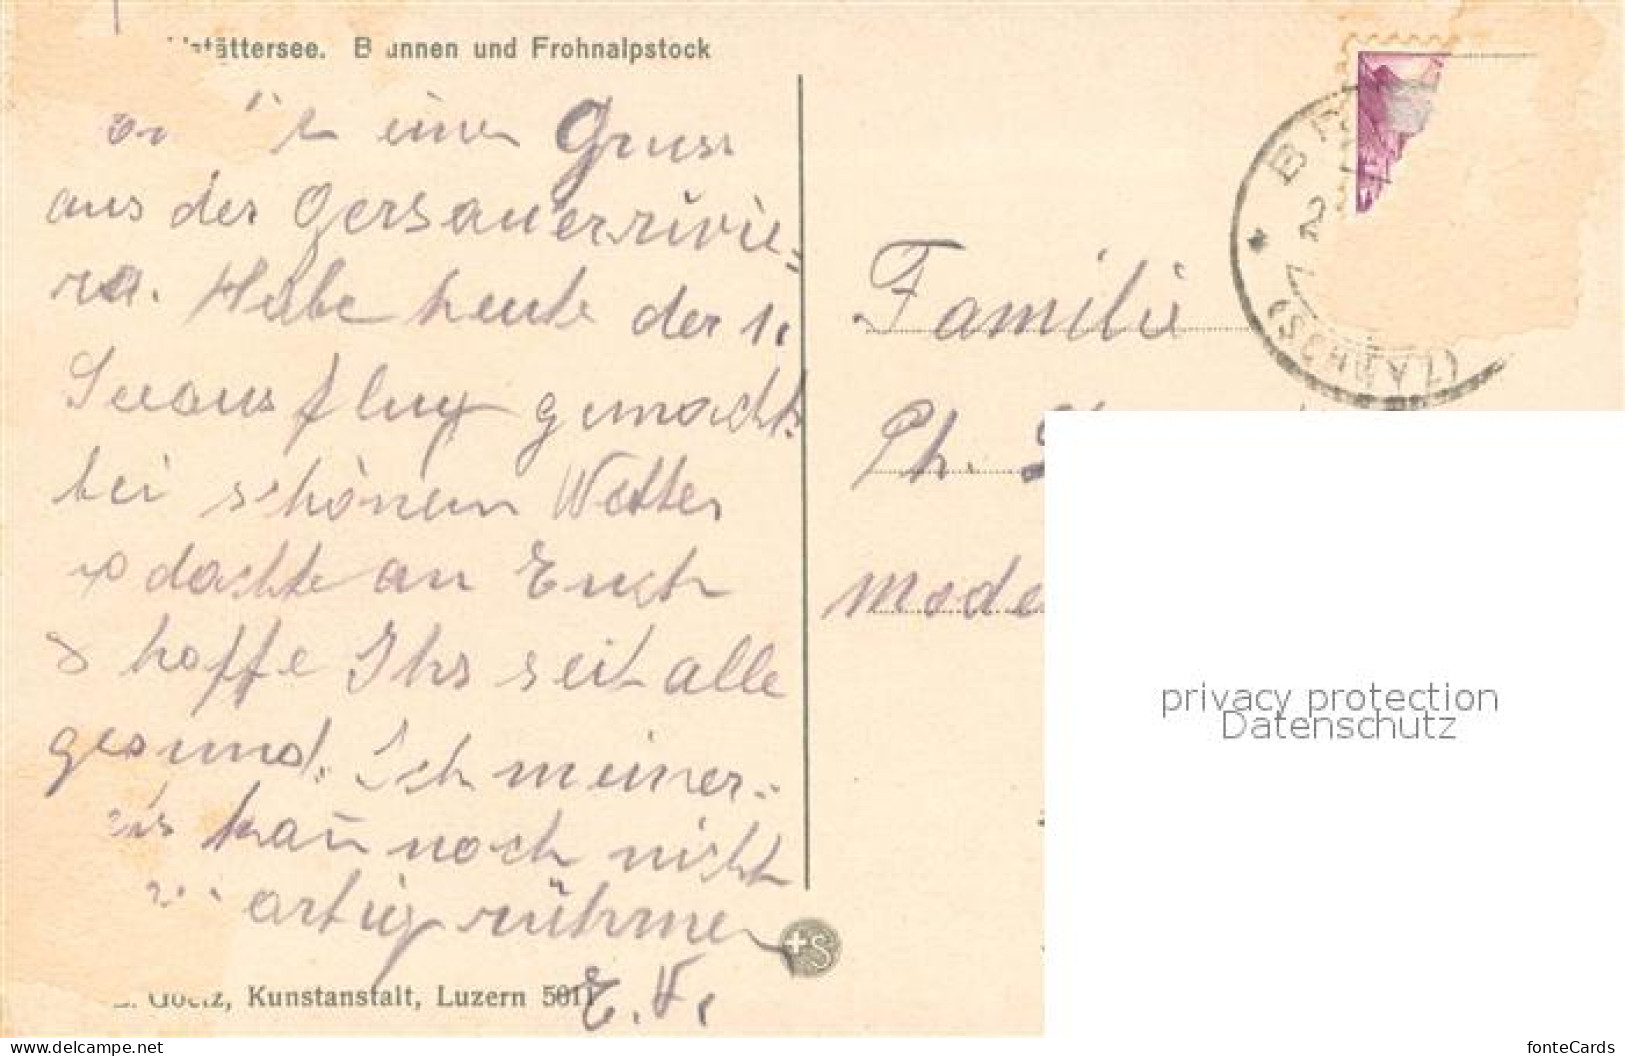 stättersee. B unnen und Frohnalpstock
einen Gruss
aus der Gersauerrivie-
ra. Habe heute den 1.
Seeausflug gemacht
bei schönem Wetter
dachte an Euch
& hoffe Ihr seit alle
gesund. Ich meiner-
kann noch nicht
artig rühmen
E. V.
Goetz, Kunstanstalt, Luzern 5011
+S
Familie
Ph.
Mode
(SCHWYZ)
privacy protection
Datenschutz
www.delcampe.net
fonteCards